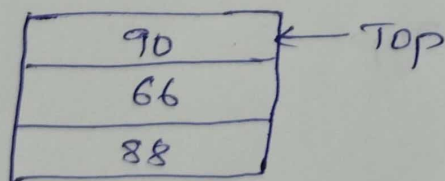 90 ← Top
66
88